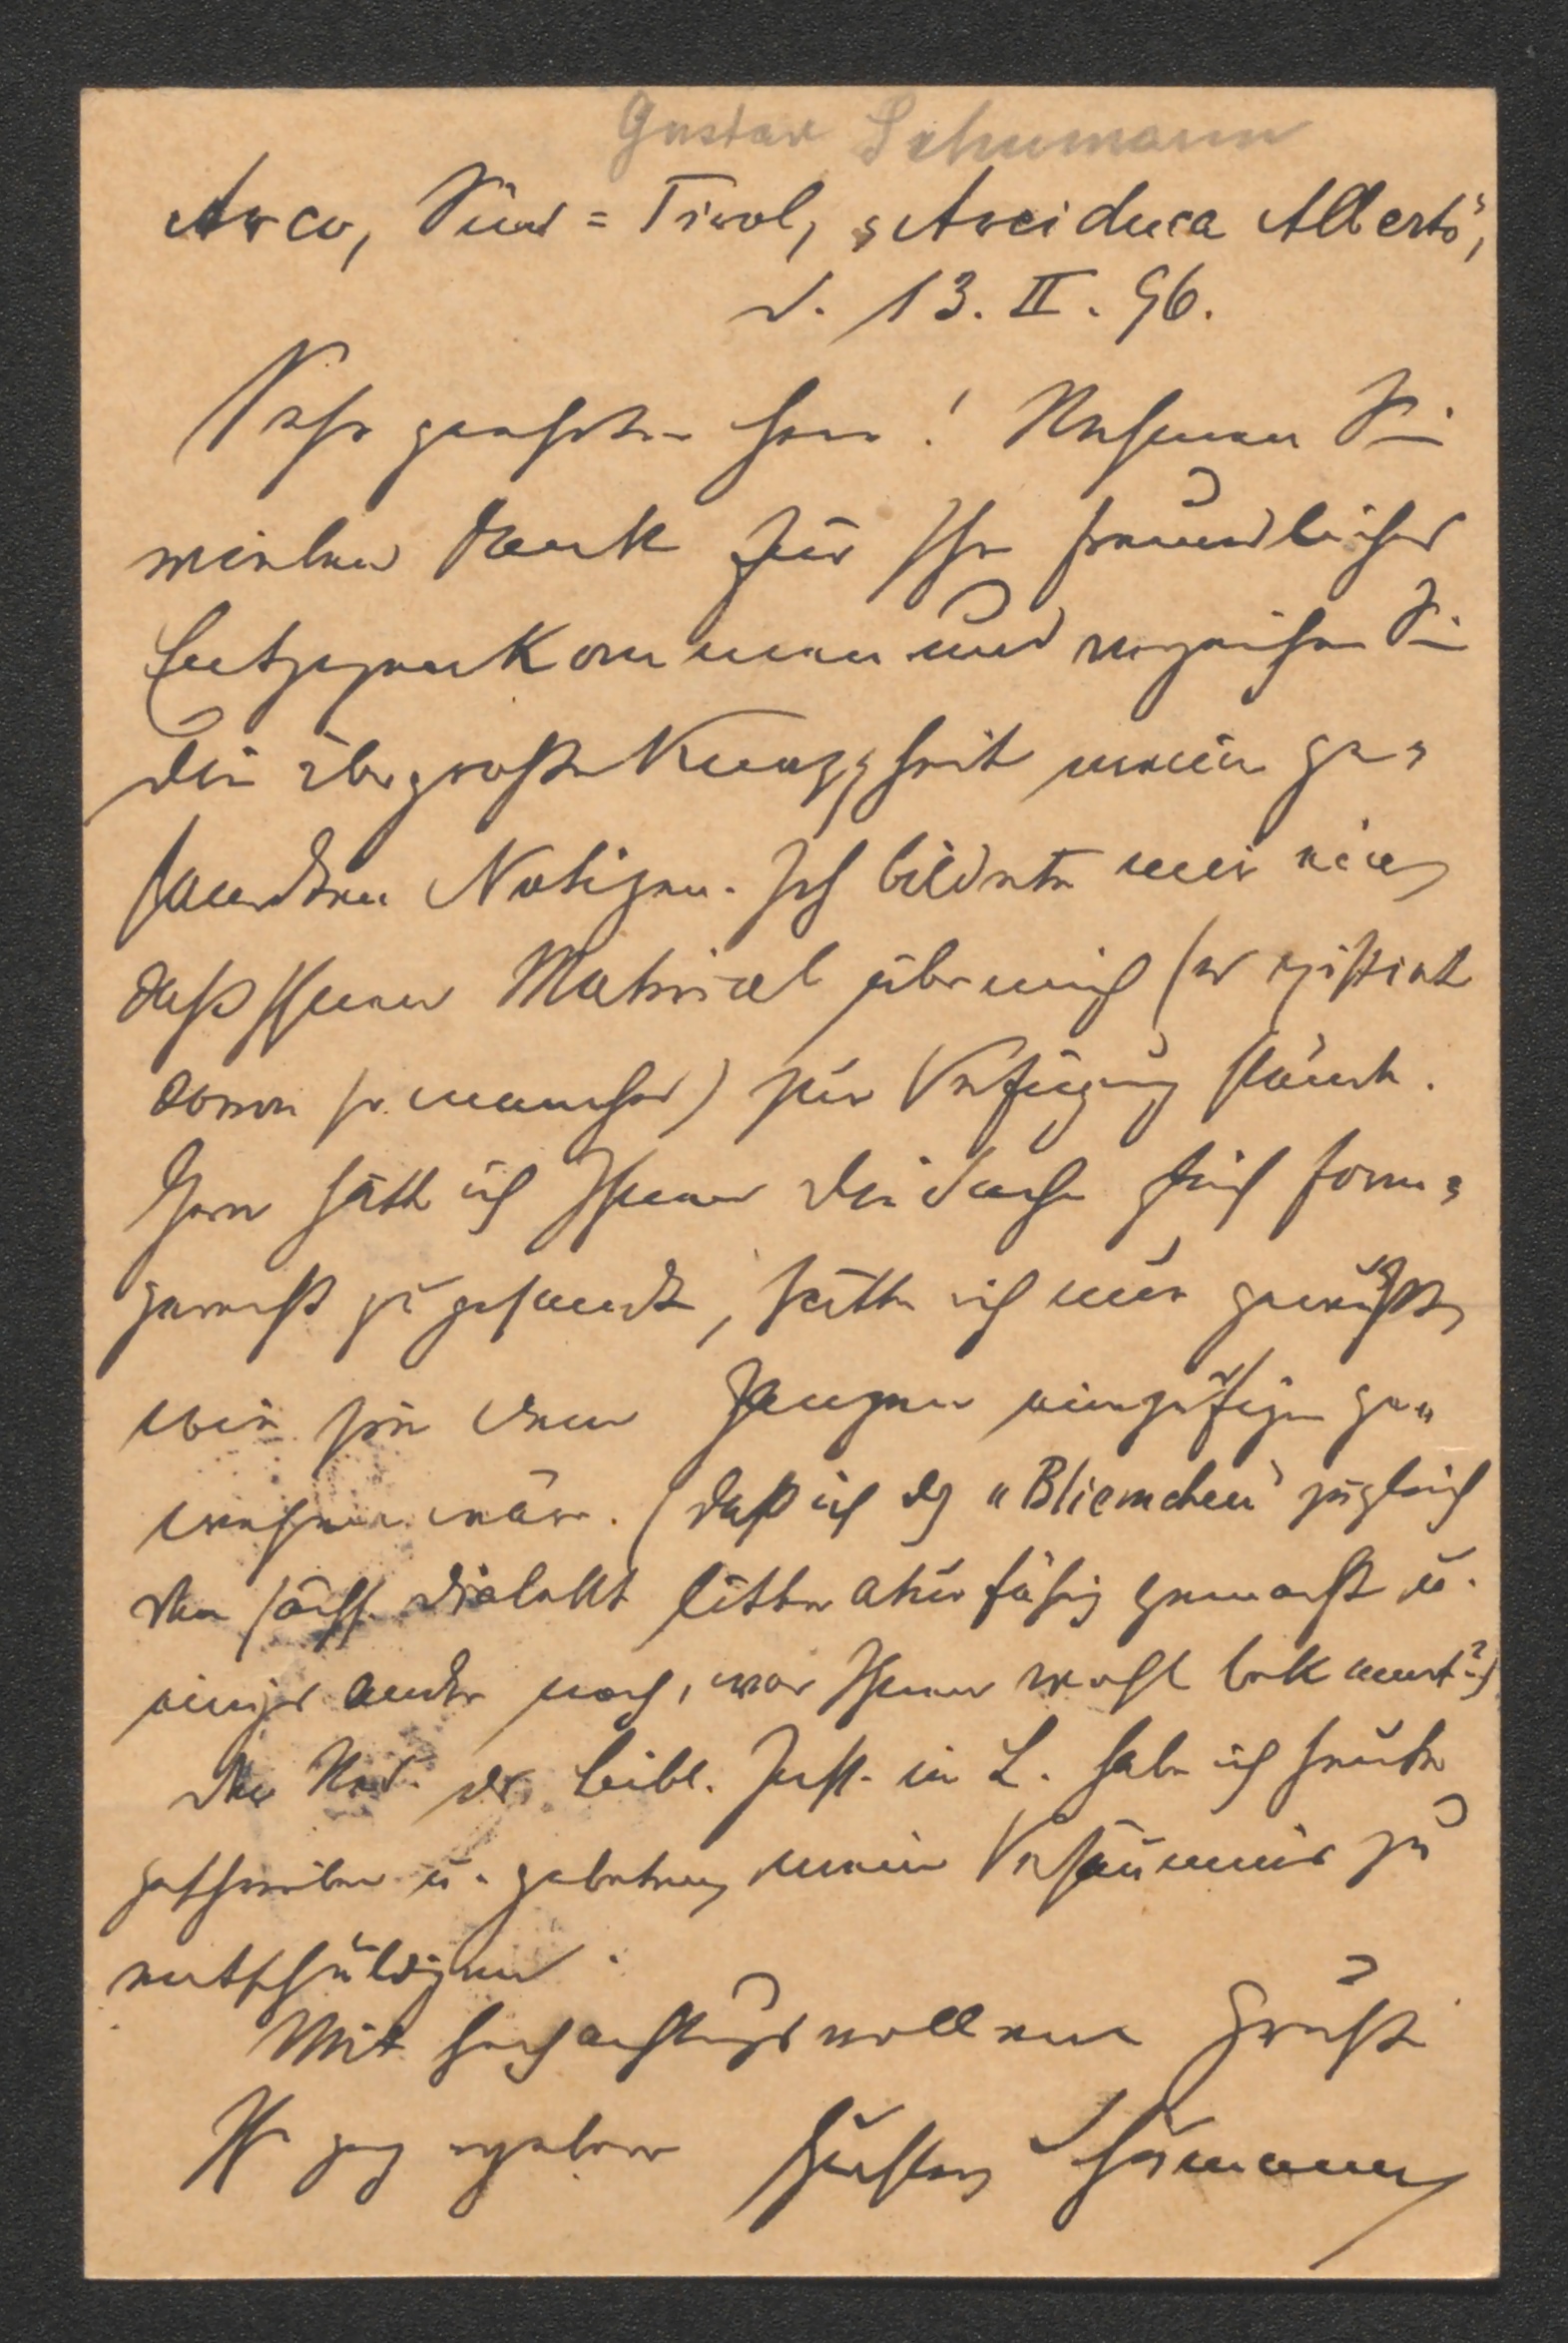 Gustav Schumann
Arco, Süd=Tirol, „Arciduca Alberto",
d. 13. II. 96.
Sehr geehrter Herr! Nehmen Sie
vielen Dank für Ihr freundliches
Entgegenkommen und verzeihen Sie
die übergroße Knappheit meiner ge=
sandten Notizen. Ich bildete mir ein,
daß Ihnen Material über mich (es existirt
davon so manches) zur Verfügung stände.
Gern hätte ich Ihnen die Sache gleich form=
gerecht zugesandt, hätte ich nur gewußt,
wie sie dem Ganzen einzufügen ge=
wesen wäre. (Daß ich als „Bliemchen" zugleich
den sächs. Dialekt litteraturfähig gemacht u.
einiges andre noch, war Ihnen wohl bekannt?)
Der Red. der bibl. Inst. in L. habe ich heute
geschrieben u. gebeten, mein Versäumnis zu
entschuldigen.
Mit hochachtungsvollem Gruße
Ihr ganz ergebener Gustav Schumann